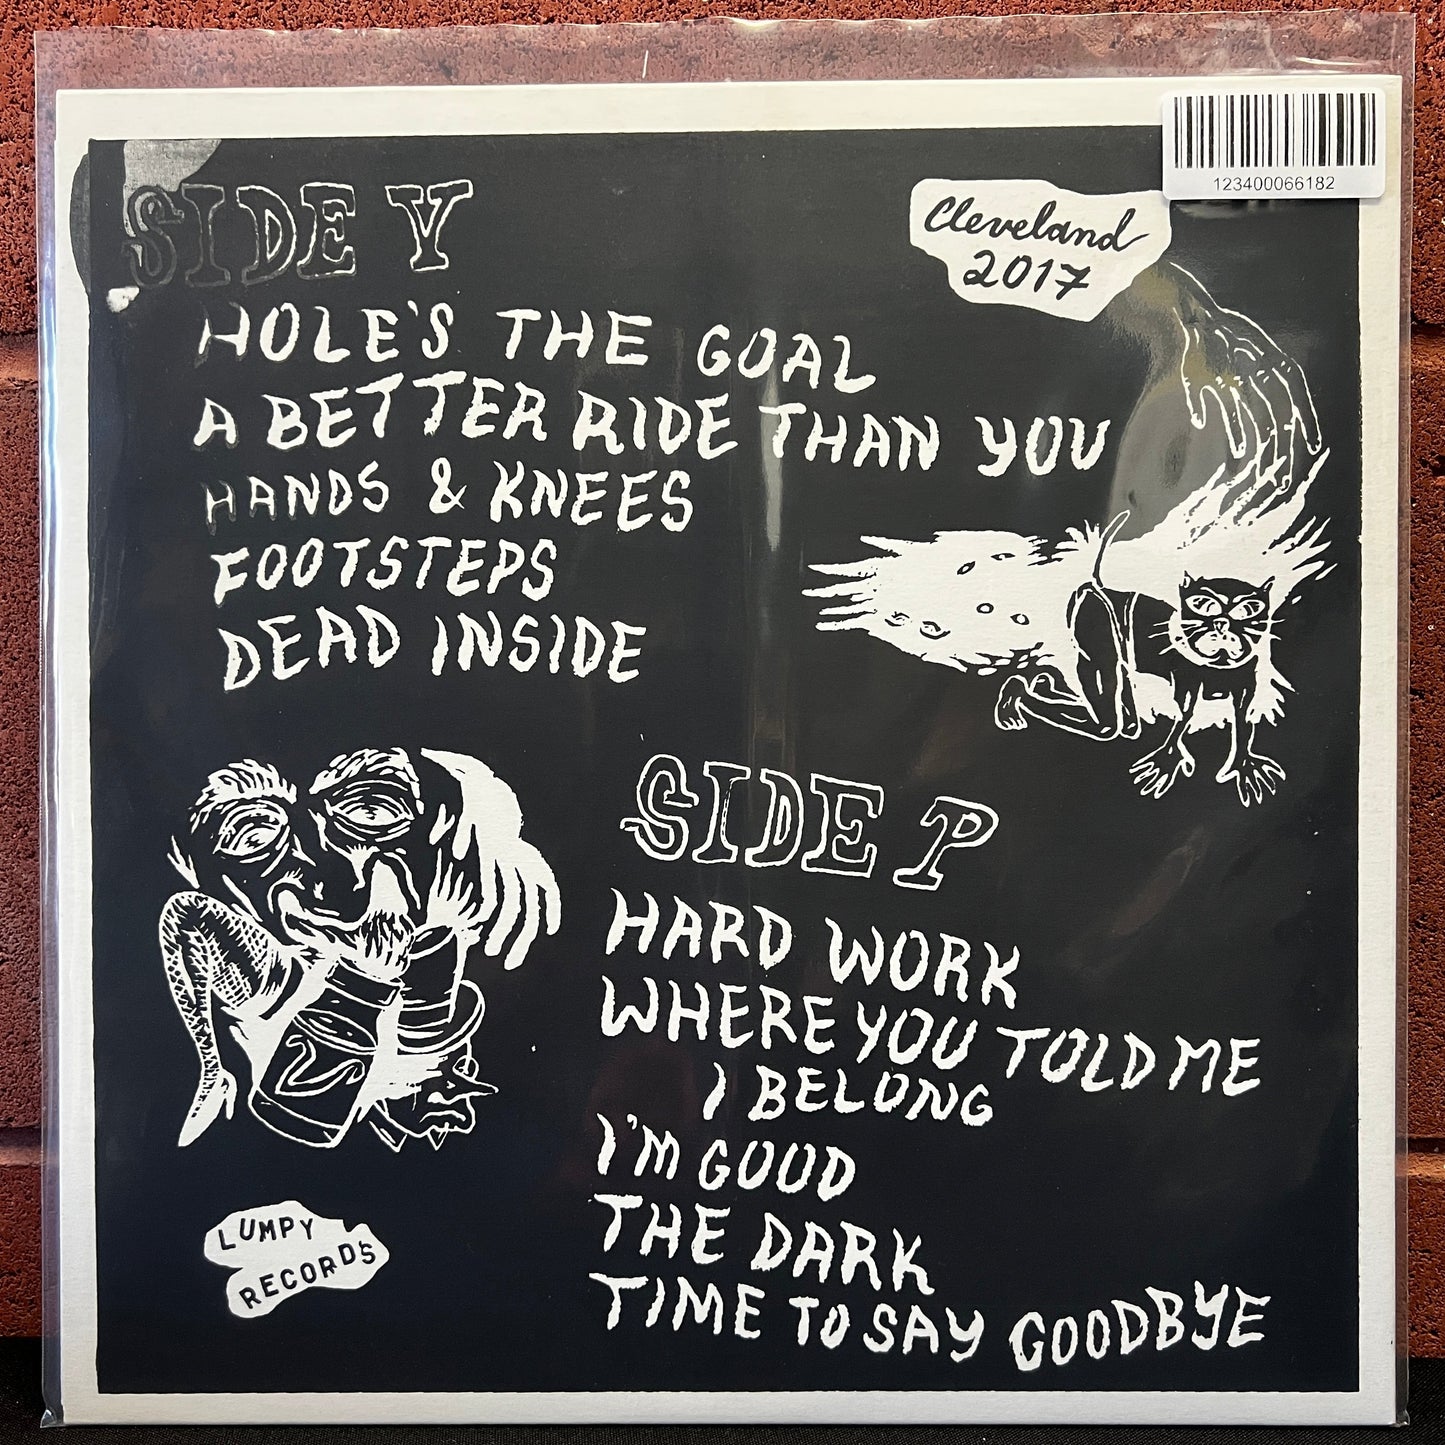 123400066182
SIDE Y
Cleveland
2017
HOLE'S THE GOAL
A BETTER RIDE THAN YOU
HANDS & KNEES
FOOTSTEPS
DEAD INSIDE
SIDE P
HARD WORK
WHERE YOU TOLD ME
I BELONG
I'M GOOD
THE DARK
TIME TO SAY GOODBYE
LUMPY
RECORDS